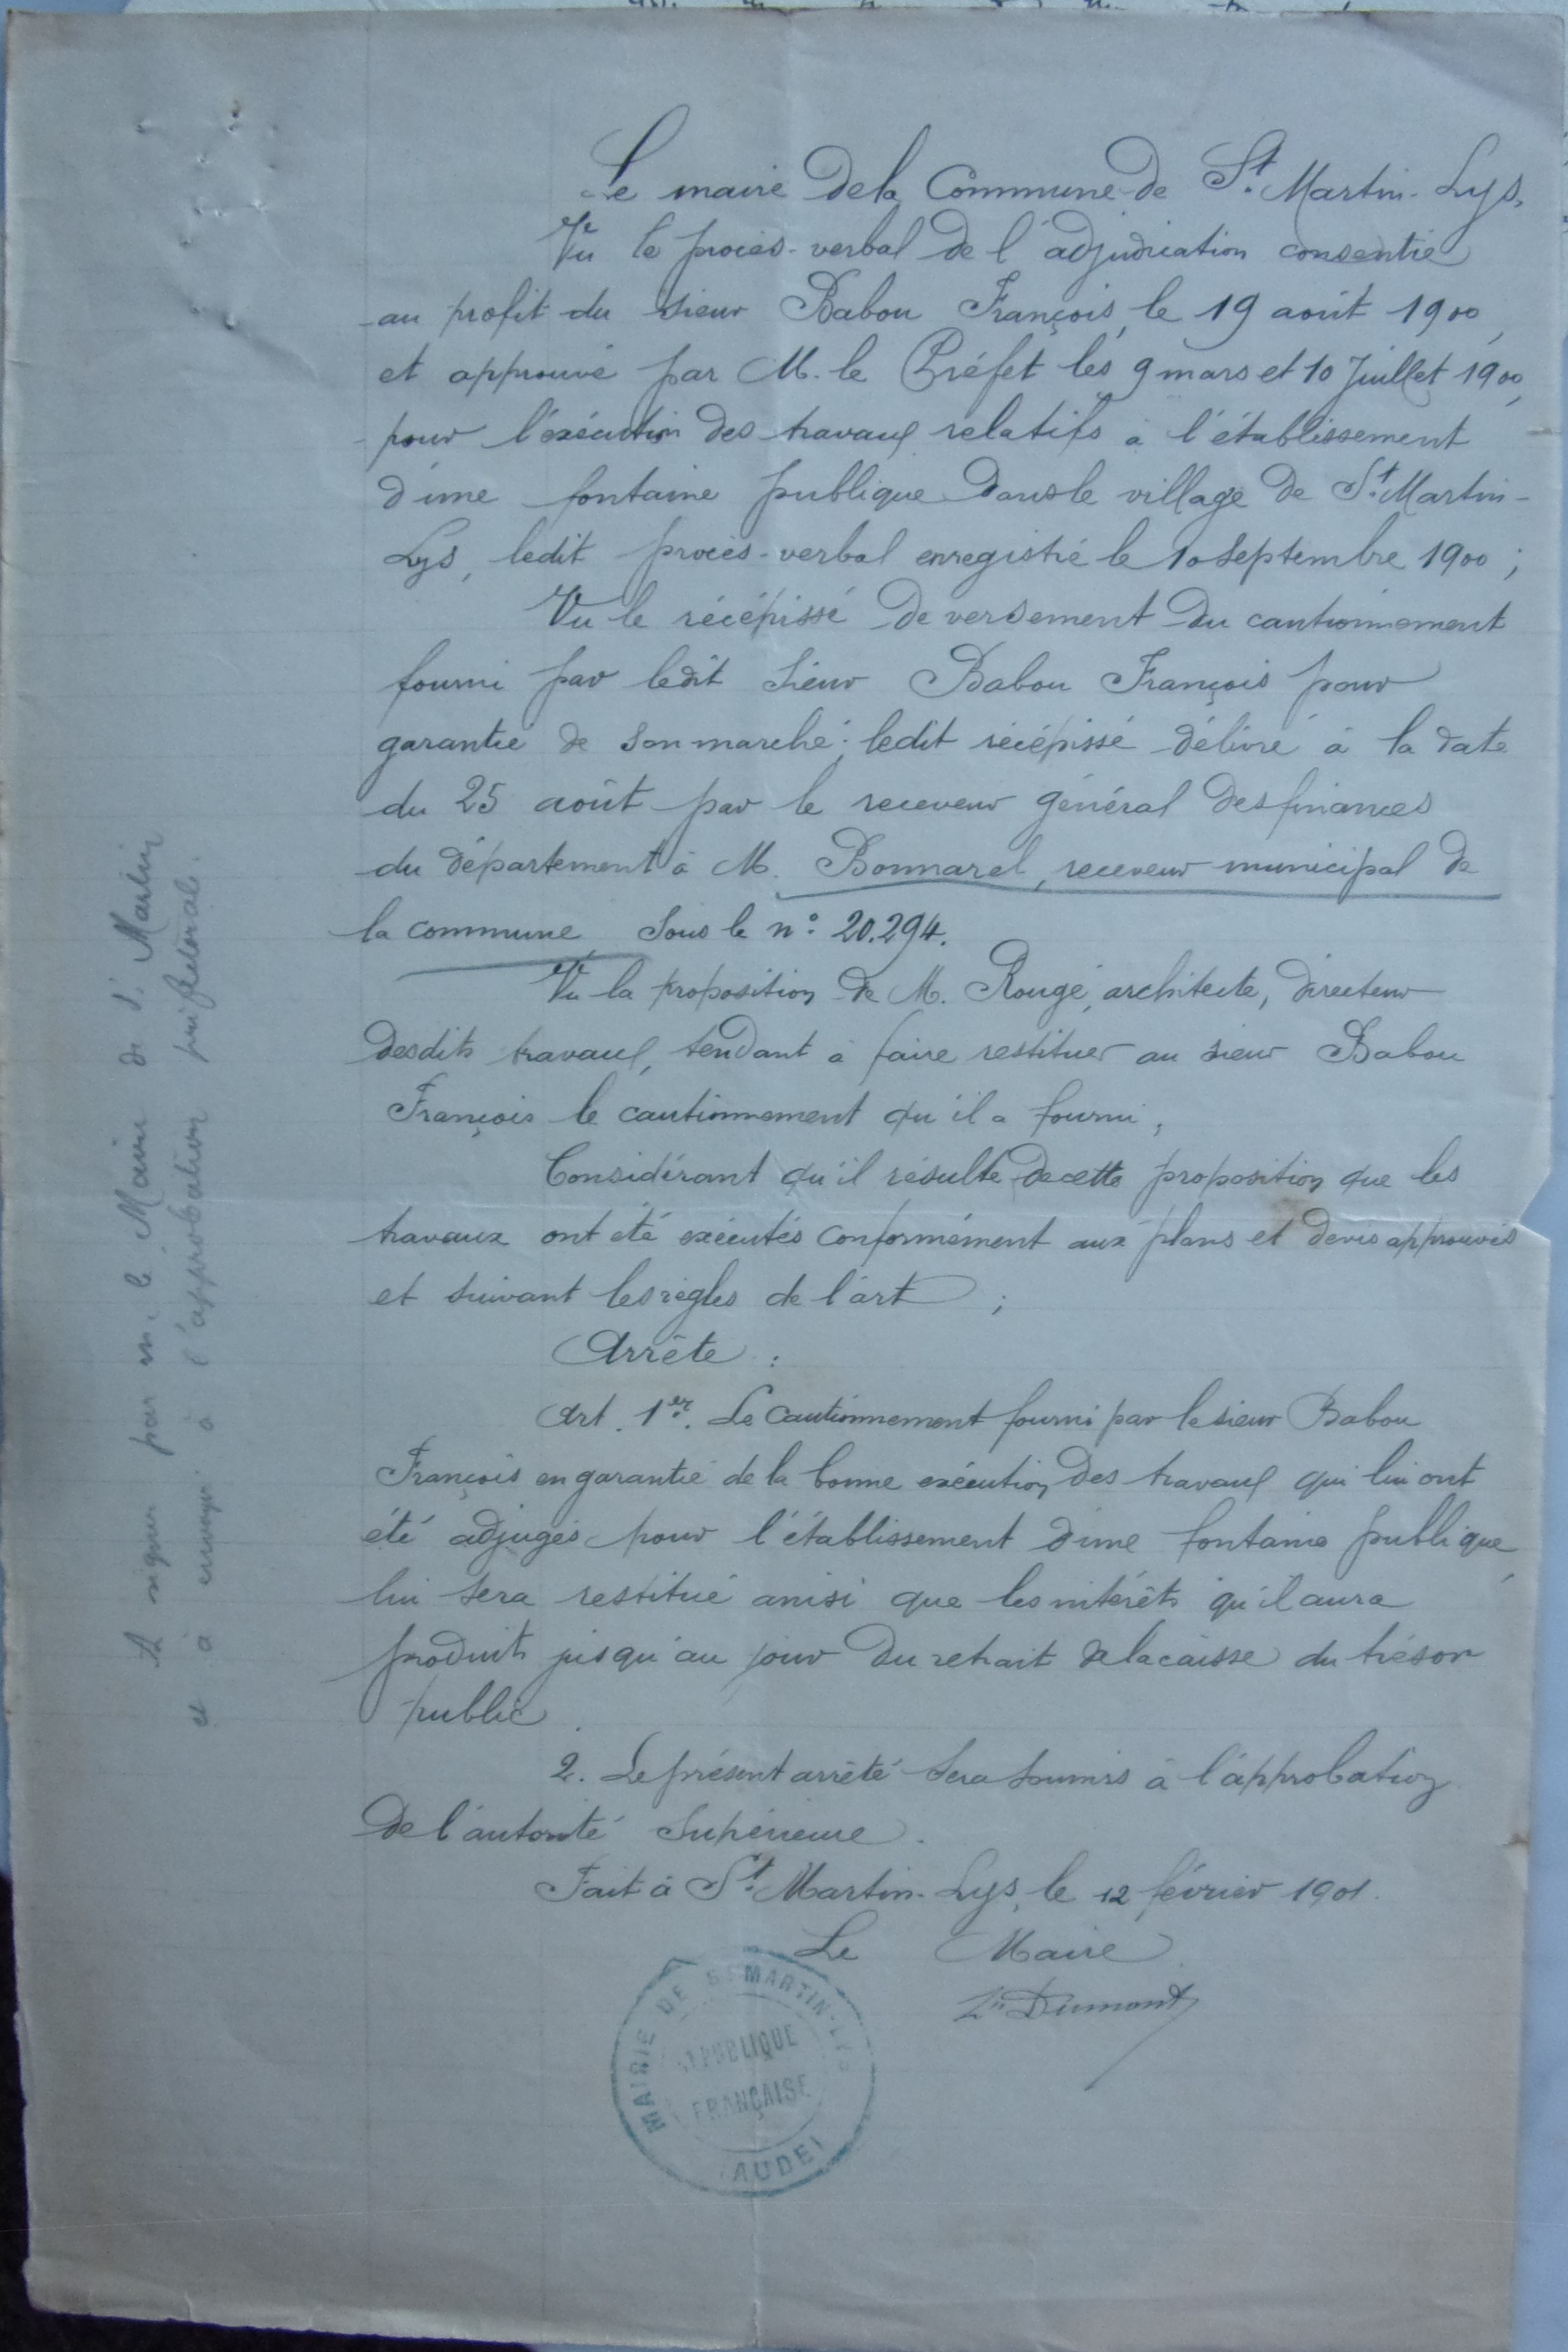 Le maire de la Commune de St. Martin-Lys,
Vu le procès-verbal de l'adjudication consentie
au profit du sieur Babou François, le 19 août 1900,
et approuvé par M. le Préfet les 9 mars et 10 Juillet 1900,
pour l'exécution des travaux relatifs à l'établissement
d'une fontaine publique dans le village de St. Martin-
Lys, ledit procès-verbal enregistré le 10 septembre 1900 ;
Vu le récépissé de versement du cautionnement
fourni par ledit sieur Babou François pour
garantie de son marché ; ledit récépissé délivré à la date
du 25 août par le receveur général des finances
du département à M. Bonnarel, receveur municipal de
la commune sous le n° 20.294.
Vu la proposition de M. Rougé, architecte, directeur
desdits travaux, tendant à faire restituer au sieur Babou
François le cautionnement qu'il a fourni,
Considérant qu'il résulte de cette proposition que les
travaux ont été exécutés conformément aux plans et devis approuvés
et suivant les règles de l'art ;
Arrête :
Art. 1er. Le cautionnement fourni par le sieur Babou
François en garantie de la bonne exécution des travaux qui lui ont
été adjugés pour l'établissement d'une fontaine publique,
lui sera restitué ainsi que les intérêts qu'il aura
produits jusqu'au jour du retrait de la caisse du trésor
public.
2. Le présent arrêté sera soumis à l'approbation
de l'autorité supérieure.
Fait à St. Martin-Lys, le 12 février 1901.
Le Maire
Dumont
MAIRIE DE ST MARTIN-LYS
RÉPUBLIQUE
FRANÇAISE
(AUDE)
A signer par M. le Maire de St. Martin
et à envoyer à l'approbation préfectorale.